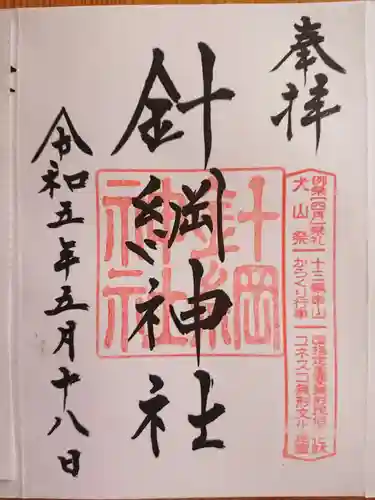 奉拝
例祭(四月)祭礼
犬山祭
十三輌車山
からくり行事
国指定重要無形民俗
ユネスコ無形文化
針綱神社
針綱神社
令和五年五月十八日